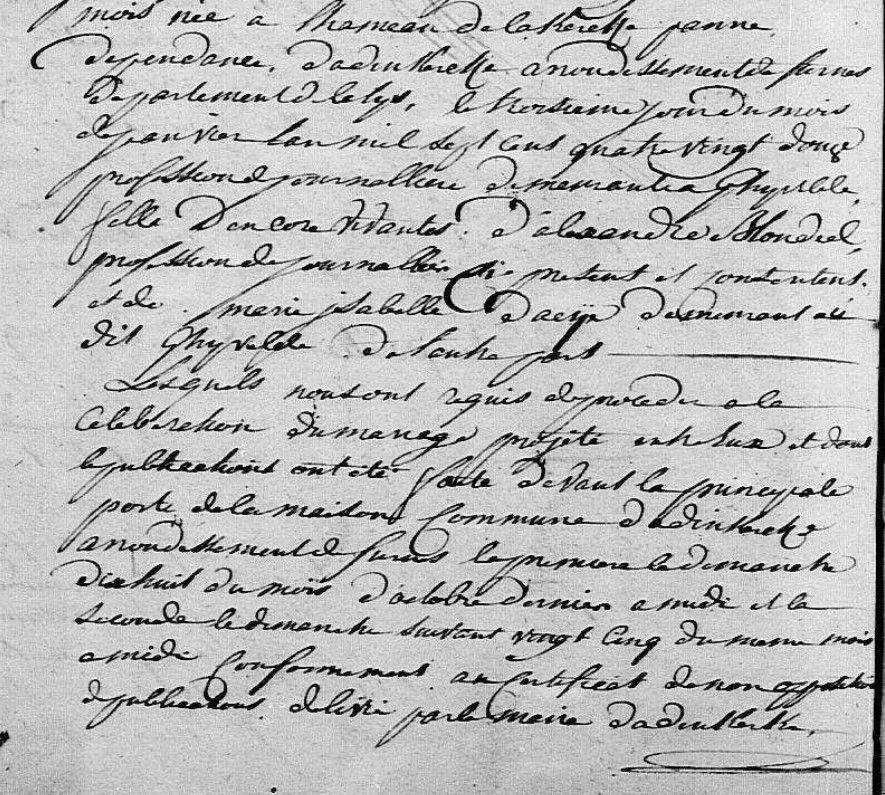 mois née a l'hameau de la Kerke panne,
dependance, d'adinkerke arrondissement de furnes
departement de la lys, le troisieme jour du mois
de janvier l'an mil sept cent quatre vingt douze
profession de journalliere demeurante a Ghyvelde,
fille D'encore vivantes. d'alexandre Blondeel,
profession de journallier ci present et consentent.
et de marie jsabelle demeurant au
dit Ghyvelde de l'autre part
Lesquels nous ont requis de proceder a la
celebration du mariage projété entr'eux et dont
les publications ont été faite devant la principale
porte de la maison Commune d'adinkerke
arrondissement de furnes la premiere le dimanche
dixhuit du mois d'octobre dernier a midi et la
seconde le dimanche suivant vingt cinq du meme mois
a midi Conformement au Certificat de non opposition
de publications delivré par le maire d'adinkerke,